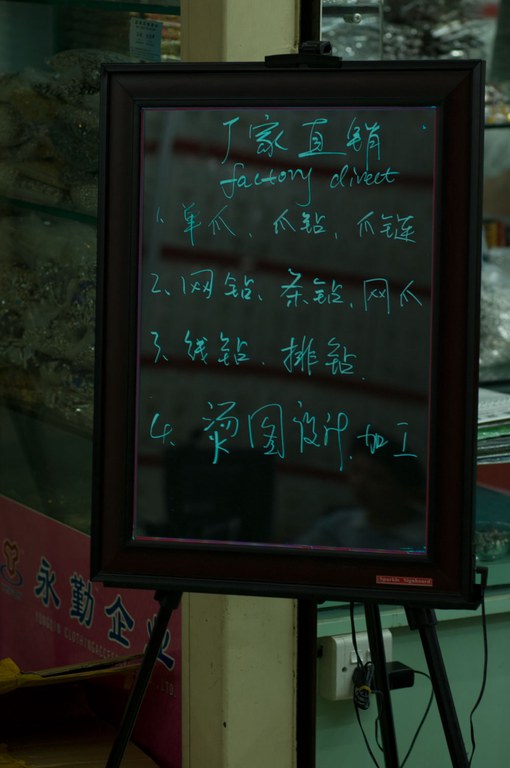 厂家直销
factory direct
1、单爪、爪钻、爪链
2、网钻、条钻、网爪
3、线钻、排钻
4、烫图设计、加工
Sparkle Signboard
永勤企业